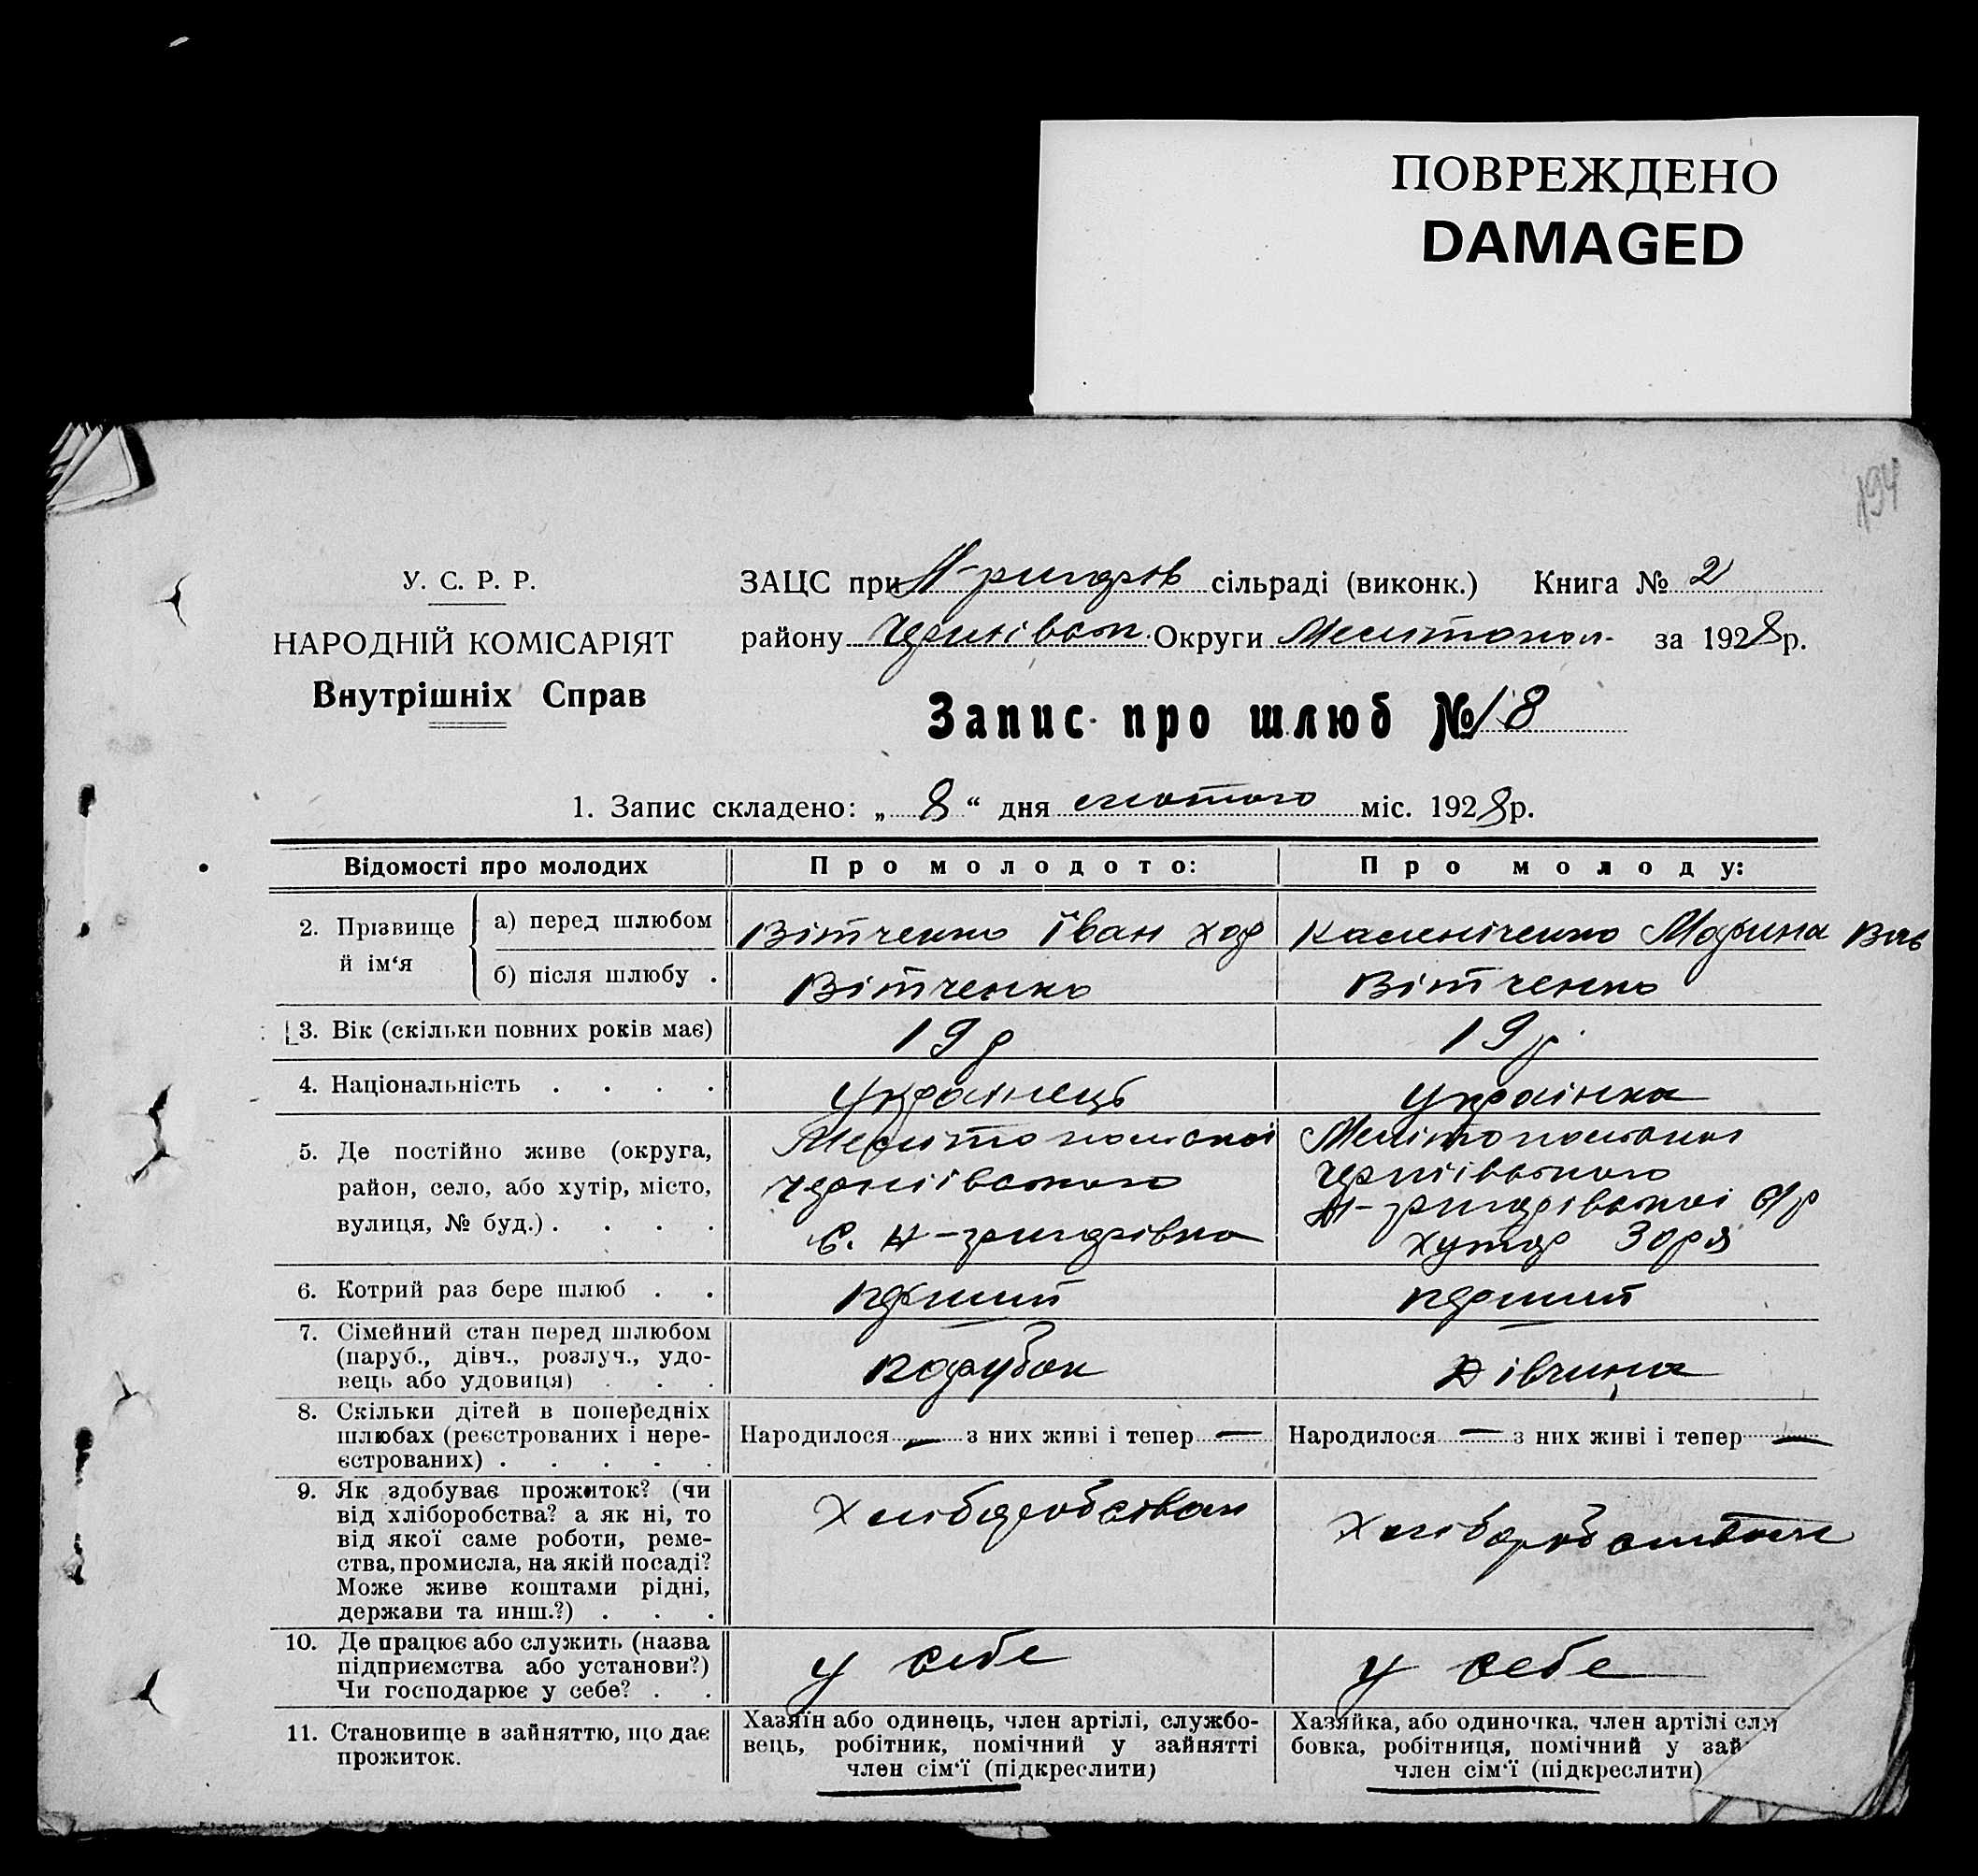 ПОВРЕЖДЕНО
DAMAGED
194
У. С. Р. Р.
НАРОДНІЙ КОМІСАРІЯТ
Внутрішніх Справ
ЗАЦС при сільраді (виконк.) Книга № 2
району Чернівськ. Округи Мелітопол- за 1928 р.
Запис про шлюб № 18
1. Запис складено: „ 8 “ дня лютого міс. 1928 р.
Відомості про молодих Про молодого: Про молоду:
2. Прізвище й ім‘я
а) перед шлюбом Вітченко Іван Каленіченко Марина
б) після шлюбу . Вітченко Вітченко
3. Вік (скільки повних років має) 19 р 19 р.
4. Національність . . . . Українець Українка
5. Де постійно живе (округа,
район, село, або хутір, місто,
вулиця, № буд.) . . . .
Мелітопольскої
чернівського
с.
Мелітопольскої
чернівського
с/р
хутор Зоря
6. Котрий раз бере шлюб . . перший перший
7. Сімейний стан перед шлюбом
(паруб., дівч., розлуч., удо-
вець або удовиця) . . .
парубок дівчина
8. Скільки дітей в попередніх
шлюбах (реєстрованих і нере-
єстрованих) . . . . .
Народилося — з них живі і тепер — Народилося — з них живі і тепер —
9. Як здобуває прожиток? (чи
від хліборобства? а як ні, то
від якої саме роботи, реме-
ства, промисла, на якій посаді?
Може живе коштами рідні,
держави та инш.?) . . .
10. Де працює або служить (назва
підприємства або установи?)
Чи господарює у себе? . .
у себе у себе
11. Становище в зайняттю, що дає
прожиток.
Хазяїн або одинець, член артілі, службо-
вець, робітник, помічний у зайнятті
член сім‘ї (підкреслити)
Хазяйка, або одиночка, член артілі слу
бовка, робітниця, помічний у зай
член сім‘ї (підкреслити)